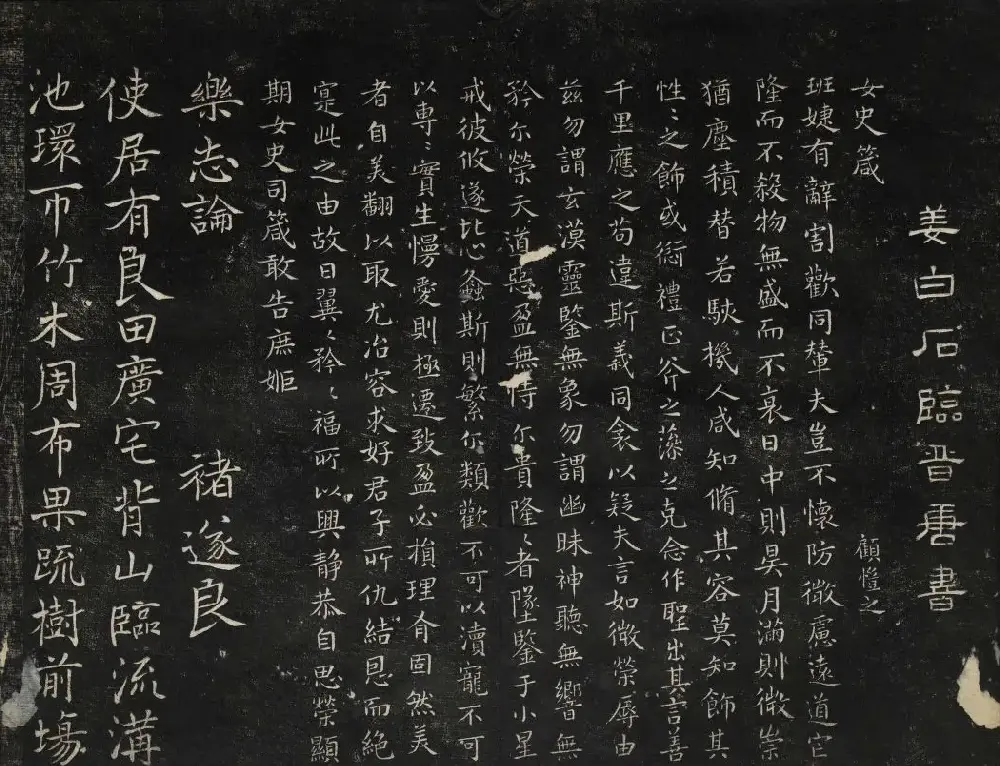 姜白石臨晉唐書
女史箴 顧愷之
班婕有辭割歡同輦夫豈不懷防微慮遠道它
隆而不殺物無盛而不衰日中則昃月滿則微崇
猶塵積替若駭機人咸知脩其容莫知飾其
性〻之飾或愆禮正斧之藻之克念作聖出其言善
千里應之苟違斯義同衾以疑夫言如微榮辱由
茲勿謂玄漠靈鑒無象勿謂幽昧神聽無響無
矜尔榮天道惡盈無恃尔貴隆〻者墜鑒于小星
戒彼攸遂比心螽斯則繁尔類歡不可以瀆寵不可
以專〻實生慢愛則極遷致盈必損理有固然美
者自美翩以取尤冶容求好君子所仇結恩而絕
寔此之由故曰翼〻矜〻福所以興靜恭自思榮顯
期女史司箴敢告庶姬
樂志論 褚遂良
使居有良田廣宅背山臨流溝
池環帀竹木周布果蔬樹前場